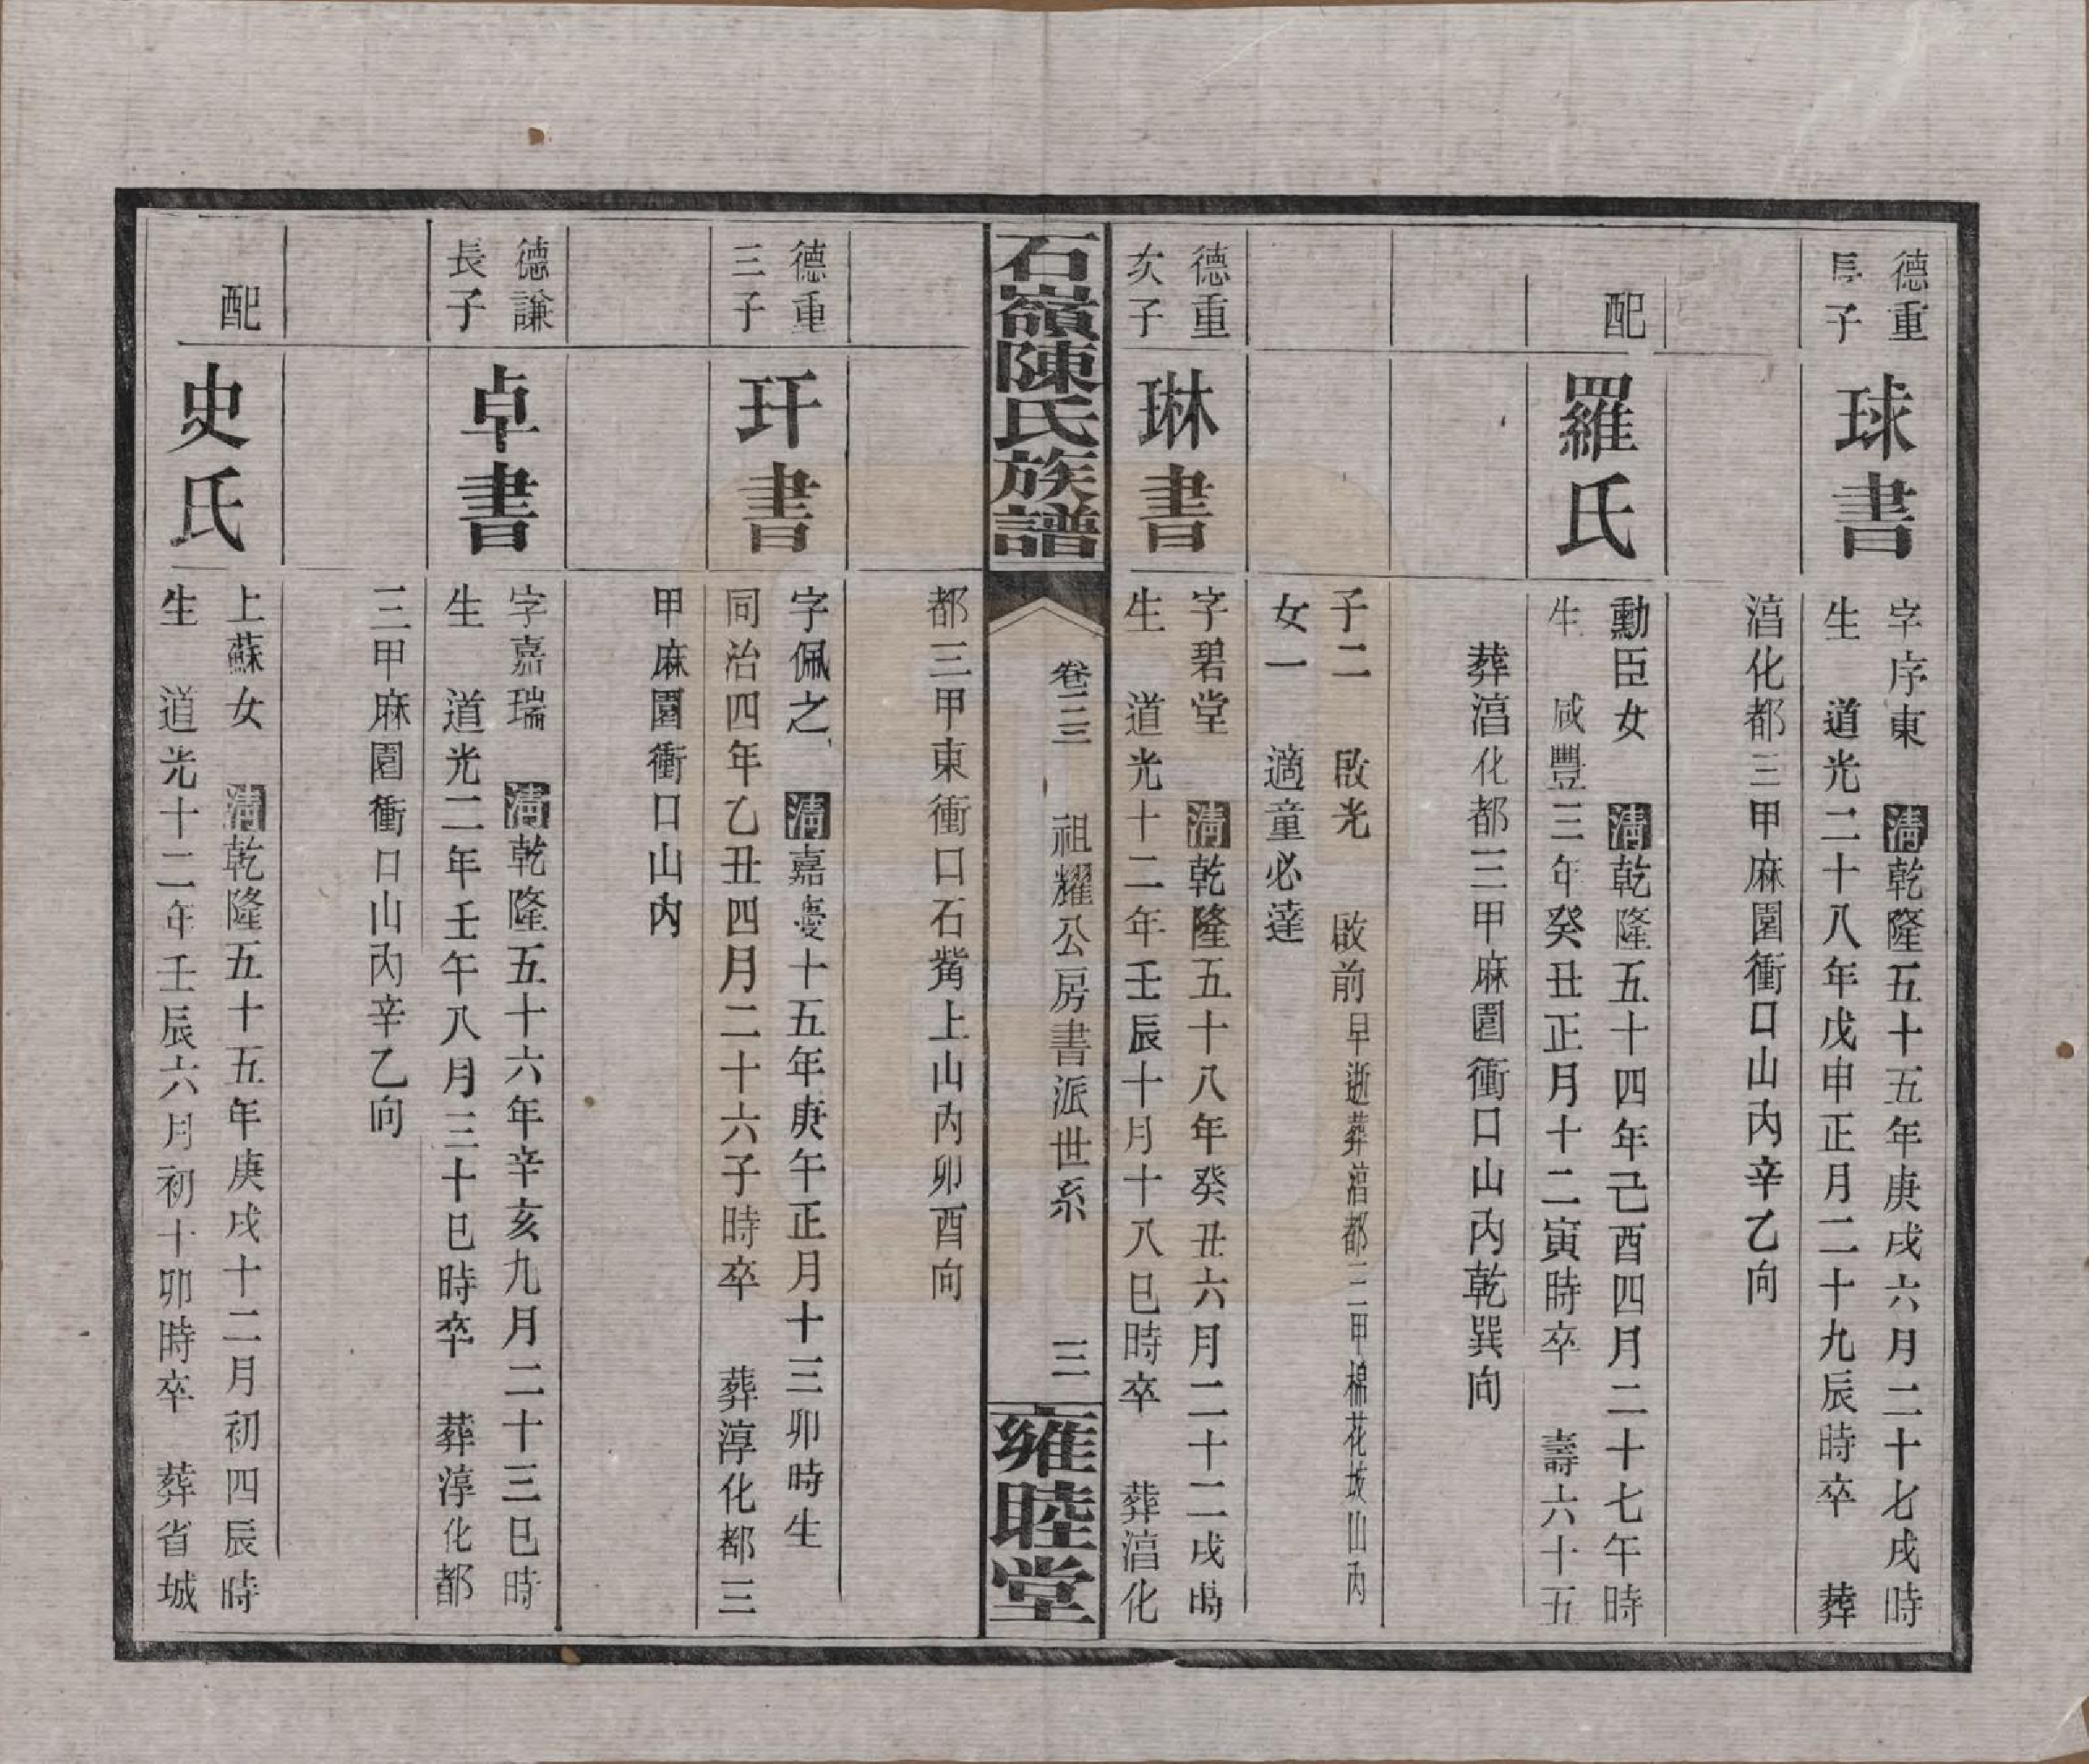 德重
長子
球書
字序東　清乾隆五十五年庚戌六月二十七戌時
生　道光二十八年戊申正月二十九辰時卒　葬
湻化都三甲麻園衝口山內辛乙向
配
羅氏
勳臣女　清乾隆五十四年己酉四月二十七午時
生　咸豐三年癸丑正月十二寅時卒　壽六十五
葬湻化都三甲麻園衝口山內乾巽向
子二　啟光　啟前早逝葬湻都三甲棉花坡山內
女一　適童必達
德重
次子
琳書
字碧堂　清乾隆五十八年癸丑六月二十二戌時
生　道光十二年壬辰十月十八巳時卒　葬湻化
石嶺陳氏族譜
卷三　祖耀公房書派世系　三
雍睦堂
都三甲東衝口石觜上山內卯酉向
德重
三子
玕書
字佩之　清嘉慶十五年庚午正月十三卯時生
同治四年乙丑四月二十六子時卒　葬淳化都三
甲麻園衝口山內
德謙
長子
卓書
字嘉瑞　清乾隆五十六年辛亥九月二十三巳時
生　道光二年壬午八月三十巳時卒　葬淳化都
三甲麻園衝口山內辛乙向
配
史氏
上蘇女　清乾隆五十五年庚戌十二月初四辰時
生　道光十二年壬辰六月初十卯時卒　葬省城